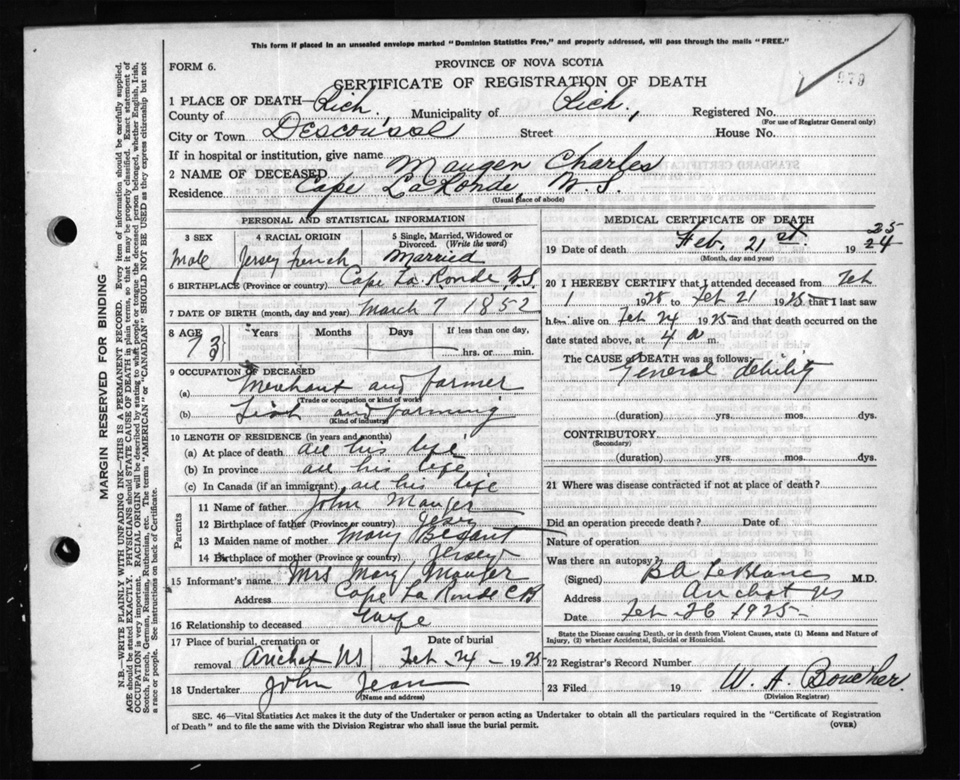 This form if placed in an unsealed envelope marked "Dominion Statistics Free," and properly addressed, will pass through the mails "FREE."
FORM 6.
PROVINCE OF NOVA SCOTIA
979
CERTIFICATE OF REGISTRATION OF DEATH
1 PLACE OF DEATH—
County of Rich. Municipality of Rich. Registered No.
(For use of Registrar General only)
City or Town Descousse Street House No.
If in hospital or institution, give name
2 NAME OF DECEASED Mauger Charles
Residence Cape La Ronde, N.S.
(Usual place of abode)
PERSONAL AND STATISTICAL INFORMATION
3 SEX Male
4 RACIAL ORIGIN Jersey french
5 Single, Married, Widowed or Divorced. (Write the word) Married
6 BIRTHPLACE (Province or country) Cape La Ronde N.S.
7 DATE OF BIRTH (month, day and year) March 7 1852
8 AGE Years Months Days If less than one day,
73 hrs. or min.
9 OCCUPATION OF DECEASED
(a) Merchant and farmer
(Trade or occupation or kind of work)
(b) Fish and farming
(Kind of industry)
10 LENGTH OF RESIDENCE (in years and months)
(a) At place of death all his life
(b) In province all his life
(c) In Canada (if an immigrant) all his life
Parents
11 Name of father John Mauger
12 Birthplace of father (Province or country) Jersey
13 Maiden name of mother Mary Besant
14 Birthplace of mother (Province or country) Jersey
15 Informant's name Mrs Mary Mauger
Address Cape La Ronde CB
16 Relationship to deceased Wife
17 Place of burial, cremation or removal Arichat NS
Date of burial Feb 24 - 1925
18 Undertaker John Jean
(Name and address)
MEDICAL CERTIFICATE OF DEATH
19 Date of death Feb. 21 st. 19 25 24
(Month, day and year)
20 I HEREBY CERTIFY that I attended deceased from Feb
1 1925 to Feb 21 1925 that I last saw
him alive on Feb 24 1925 and that death occurred on the
date stated above, at 4 a m.
The CAUSE of DEATH was as follows:
General debility
(duration) yrs. mos. dys.
CONTRIBUTORY
(Secondary)
(duration) yrs. mos. dys.
21 Where was disease contracted if not at place of death?
Did an operation precede death? Date of
Nature of operation
Was there an autopsy?
(Signed) B A LeBlanc M.D.
Address Arichat NS
Date Feb 26 1925
State the Disease causing Death, or in death from Violent Causes, state (1) Means and Nature of Injury, (2) whether Accidental, Suicidal or Homicidal.
22 Registrar's Record Number
23 Filed 19 W. A. Boucher.
(Division Registrar)
SEC. 46—Vital Statistics Act makes it the duty of the Undertaker or person acting as Undertaker to obtain all the particulars required in the "Certificate of Registration
of Death" and to file the same with the Division Registrar who shall issue the burial permit. (OVER)
MARGIN RESERVED FOR BINDING
N.B.—WRITE PLAINLY WITH UNFADING INK—THIS IS A PERMANENT RECORD. Every item of information should be carefully supplied.
AGE should be stated EXACTLY. PHYSICIANS should STATE CAUSE OF DEATH in plain terms, so that it may be properly classified. Exact statement of
OCCUPATION is very important. RACIAL ORIGIN will be described by stating to what people or tongue the deceased person belonged, whether English, Irish,
Scotch, French, German, Russian, Ruthenian, etc. The terms "AMERICAN" or "CANADIAN" SHOULD NOT BE USED as they express citizenship but not
a race or people. See instructions on back of Certificate.